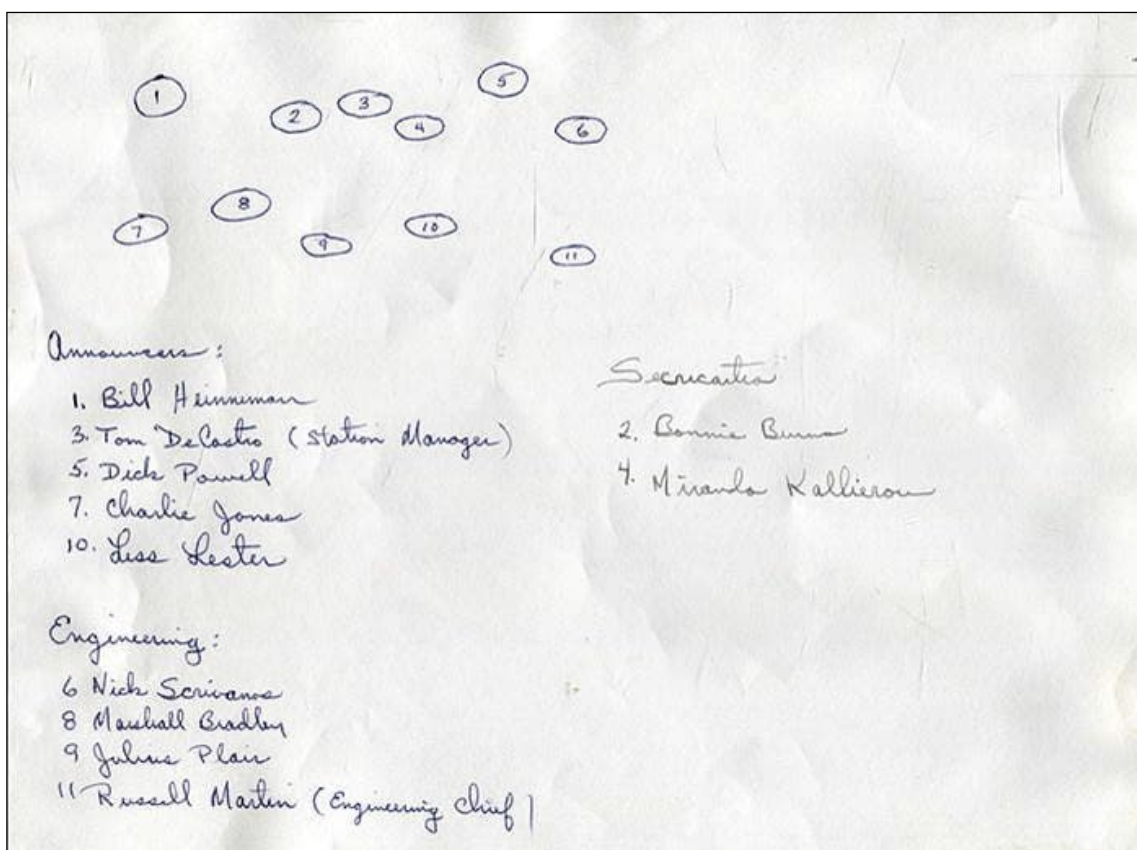 1
2
3
4
5
6
7
8
9
10
11
Announcers:
1. Bill Heinneman
3. Tom DeCastro (Station Manager)
5. Dick Powell
7. Charlie Jones
10. Less Lester
Engineering:
6 Nick Scrivanos
8 Marshall Bradley
9 Julius Plair
11 Russell Martin (Engineering Chief)
2. Bonnie Burns
4. Miranda